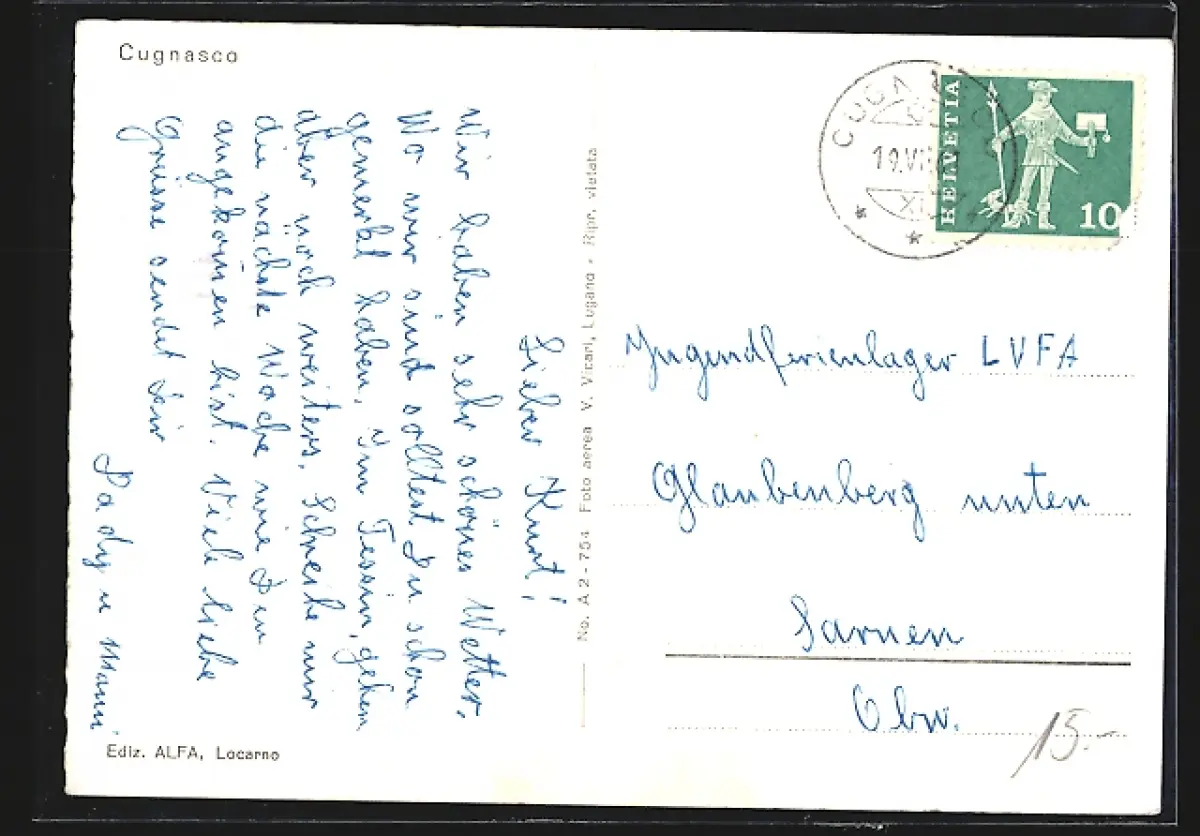 Cugnasco
Lieber Kurt!
Wir haben sehr schönes Wetter.
Wo wir sind solltest Du schon
gemerkt haben, Im Tessin, gehen
aber noch weiters. Schreibe mir
die nächste Woche wie Du
angekomen bist. Viele liebe
Grüsse sendet Dir
Pady u Mami
Ediz. ALFA, Locarno
No. A 2 - 754 Foto aerea V. Vicari, Lugano - Ripr. vietata
HELVETIA
10
Jugendferienlager LVFA
Glaubenberg unten
Sarnen
Obw.
15.-